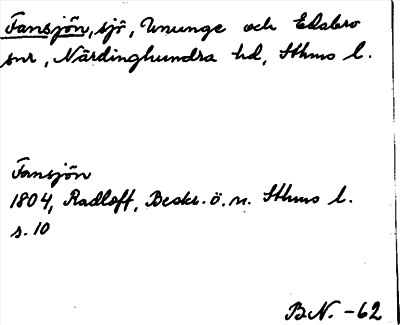 Fansjön, sjö, Ununge och Edsbro
snr, Närdinghundra hd, Sthms l.
Fansjön
1804, Radloff, Beskr. ö. n. Sthms l.
s. 10
B.N. -62